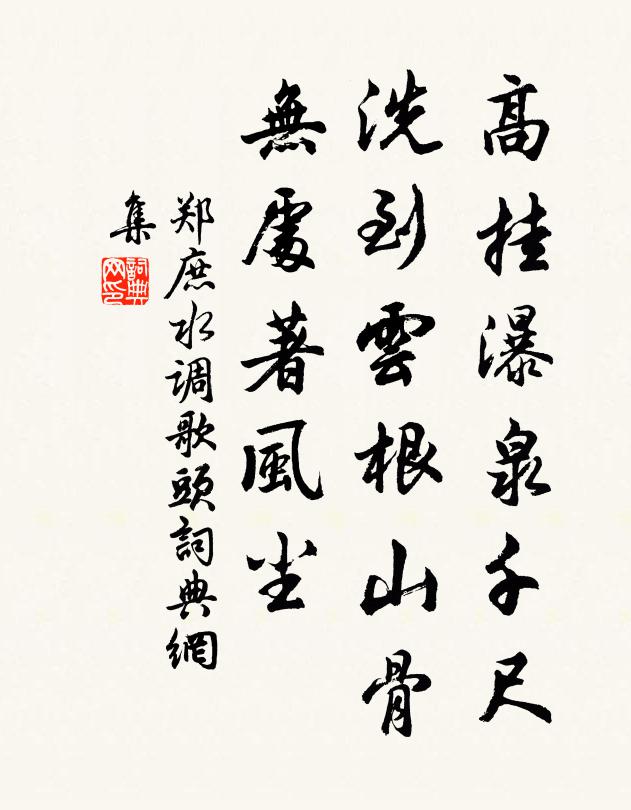 高挂瀑泉千尺
洗到雲根山骨
無處著風尘
郑庶水调歌頭詞典網
集
詞典
网印